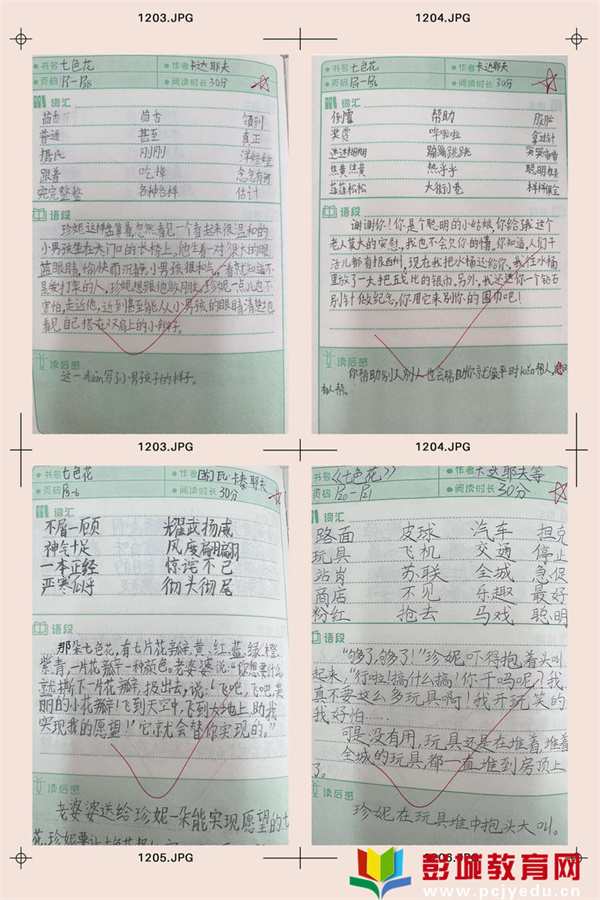 1203.JPG
1204.JPG
书名 七色花
作者 卡达耶夫
页码
阅读时长 30分
词汇
茴香 茴香 领到
普通 甚至 真正
揩氏 刚刚
跟着 吃掉 念念有词
完完整整 各种各样 估计
语段
珍妮这样盘算着,忽然看见一个看起来很温和的
小男孩坐在大门口的长椅上。他生着一对很大的眼
蓝眼睛,愉快而沉静。小男孩很和气,一看就知道不
是爱打架的人,珍妮想跟他取月肢。珍妮一点儿也不
害怕,走近他,近到甚至能从小男孩的眼睛清楚地
看见自己搭在双肩上的小辫子。
读后感
这一duàn写小男孩子的样子。
书名 七色花
作者 卡达耶夫
页码
阅读时长 30分
词汇
倒霉 帮助
奖赏 哗啦啦 拿过针
迷迷糊糊 蹦蹦跳跳
焦黄焦黄 热乎乎
蓬蓬松松 大街小巷 样样俱全
语段
谢谢你!你是个聪明的小姑娘,你给我这个
老人莫大的安慰,我也不会欠你的情。你知道,人们干
活儿都有报酬,现在我把水杨还给你,我往水杨
里放了一大把五戈比的银币,另外,我还送你一个钻石
别针做纪念,你用它来别你的围巾吧!
读后感
你帮助别人别人也会帮助你
1203.JPG
1204.JPG
书名 七色花
作者 卡泰耶夫
页码 P5-6
阅读时长 30分
词汇
不屑一顾 耀武扬威
神气十足 风度翩翩
一本正经 惊诧不已
严寒似乎 彻头彻尾
语段
那朵七色花,有七片花瓣,黄、红、蓝、绿、橙、
紫、青,一片花瓣一种颜色。老婆婆说:“你想要什么
就撕下一片花瓣,扔出去,说:‘飞吧,飞吧,美
丽的小花瓣!飞到天空中,飞到大地上,助我
实现我的愿望!’它就会替你实现的。”
读后感
老婆婆送给珍妮一朵能实现愿望的七
书名 《七色花》
作者 卡达耶夫等
页码 P20-P21
阅读时长 30分
词汇
路面 皮球 汽车 坦克
玩具 飞机 交通 停止
站岗 苏联 全城 急促
商店 不见 乐趣 最好
粉红 抢去 马戏 聪明
语段
“够了,够了!”珍妮吓得抱着头叫
起来,“行啦!搞什么搞!你干吗呢?我
真不要这么多玩具啊!我开玩笑的
我好怕……
可是没有用,玩具还是在堆着,堆着
全城的玩具,都一直堆到房顶上
了。
读后感
珍妮在玩具堆中抱头大叫。
1205.JPG
1206.JPG
彭城教育网
www.pcjyedu.cn